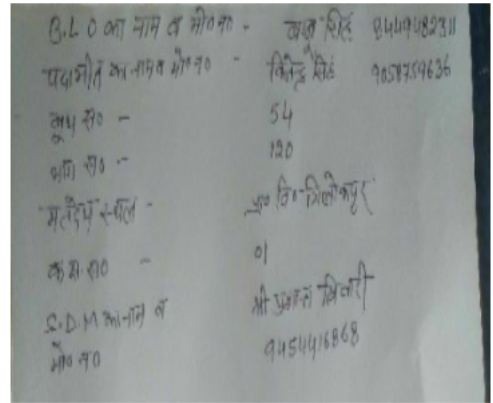 B.L.O का नाम व मो० न० - बाबू सिंह 8449482311
पदाभीत का नाम व मो० न० - जितेन्द्र सिंह 9058759636
बूथ स० - 54
भाग स० - 120
मतदेय स्थल - प्रा० वि०
कक्ष स० - 01
S.D.M का नाम व श्री प्रशान्त तिवारी
मो० न० 9454416868